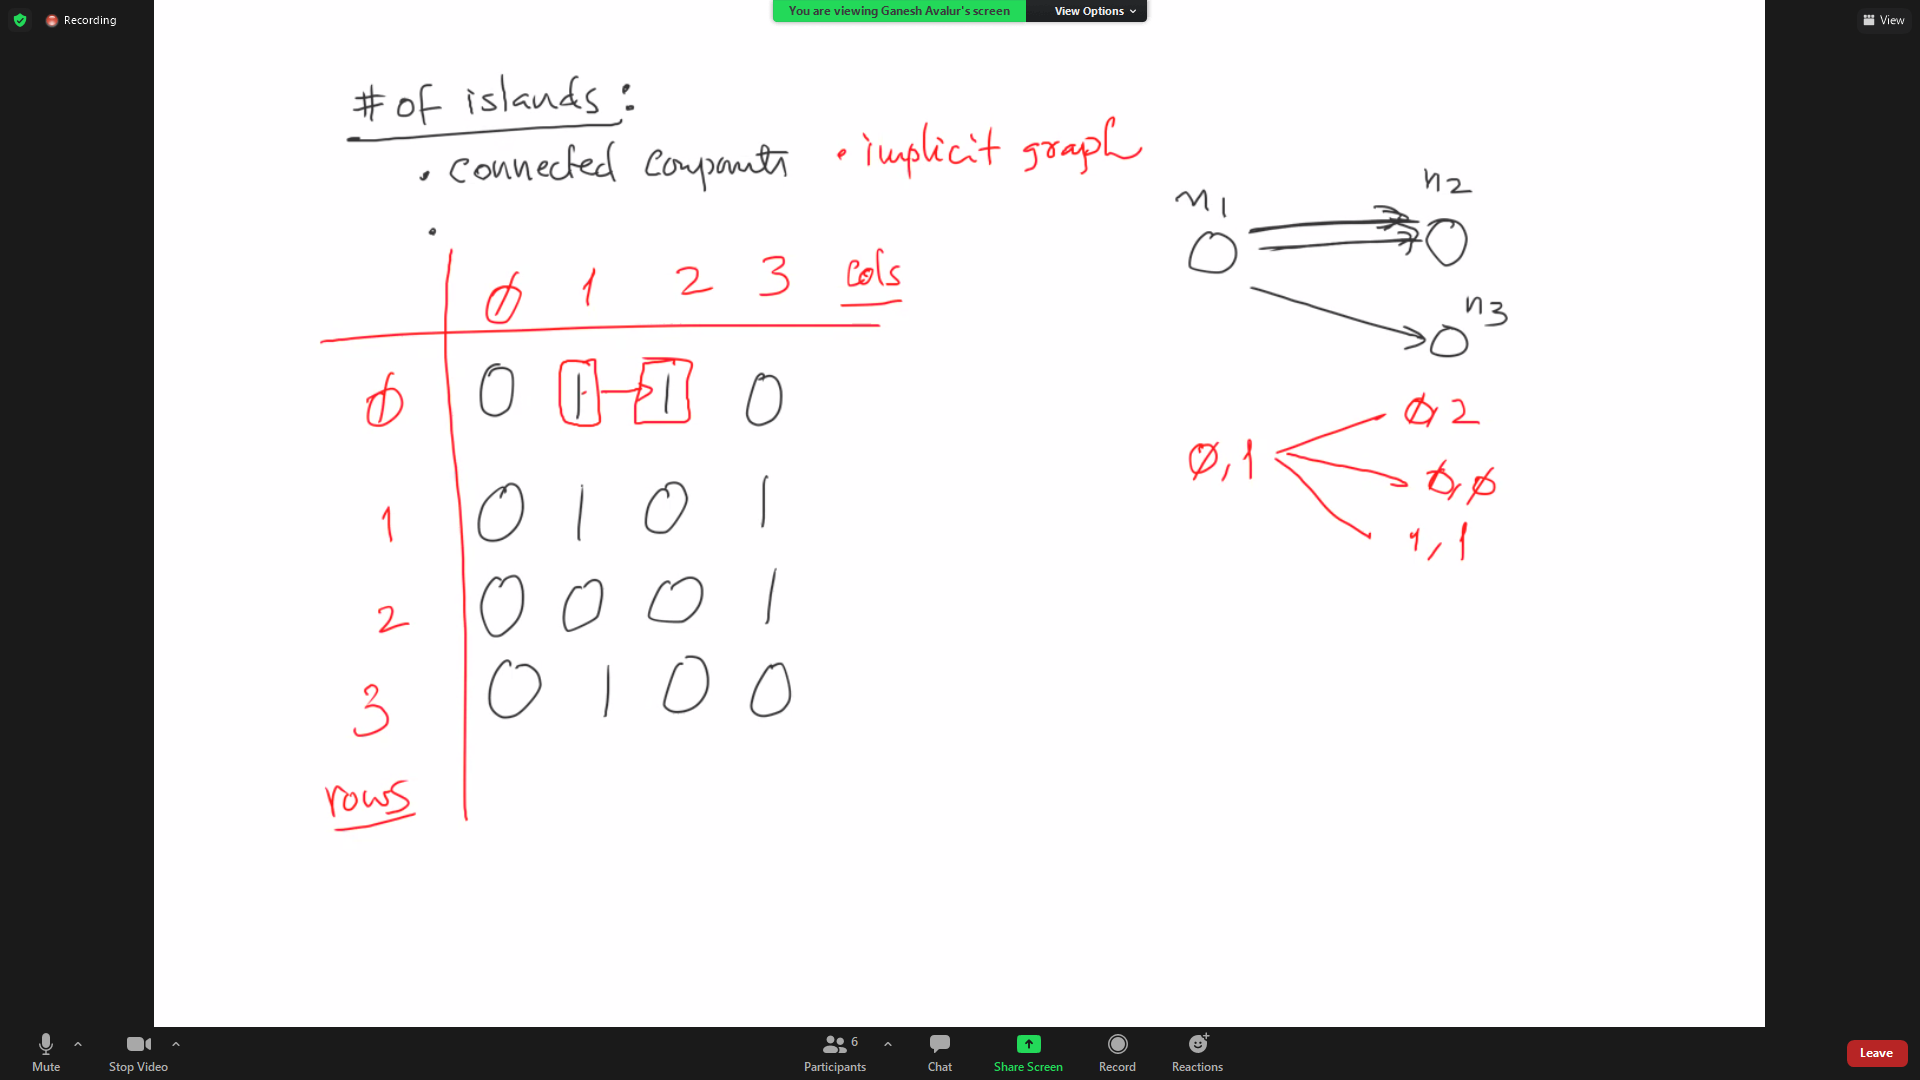 Recording
You are viewing Ganesh Avalur's screen
View Options
View
# of islands:
• connected componts • implicit graph
•
n1 n2
n3
0 1 2 3 cols
0 0 1 1 0
1 0 1 0 1
2 0 0 0 1
3 0 1 0 0
rows
0,2
0,1 0,0
1,1
Mute
Stop Video
6
Participants
Chat
Share Screen
Record
Reactions
Leave